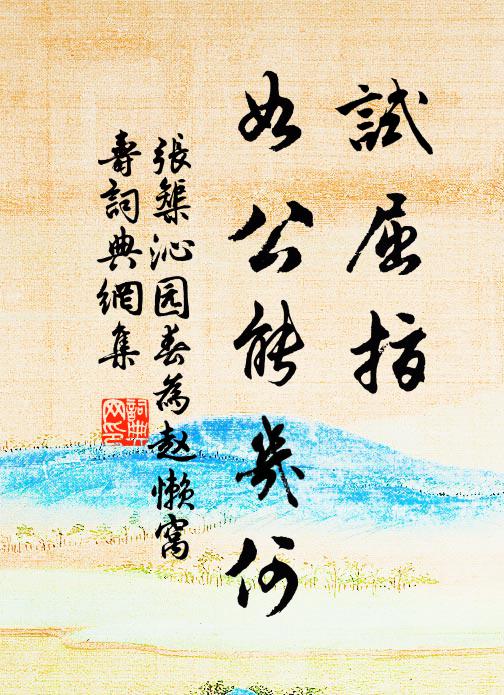 試屈指
如公能幾何
張榘沁园春為赵懒窩
壽詞典網集
詞典网印